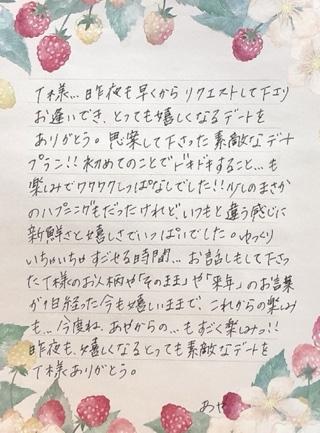 T様… 昨夜も早くからリクエストして下さり
お逢いでき、とっても嬉しくなるデートを
ありがとう。思案して下さった素敵なデート
プラン!! 初めてのことでドキドキすること…も
楽しみでワクワクしっぱなしでした!! 少しのまさか
のハプニングもだったけれど、いつもと違う感じに
新鮮さと嬉しさでいっぱいでした。ゆっくり
いちゃいちゃすごせる時間… お話しもして下さっ
たT様のお人柄や「そのまま」や「来年」のお言葉
が1日経った今も嬉しいままで、これからの楽しみ
も… 今度ね、あやからの…もすごく楽しみっ!!
昨夜も、嬉しくなるとっても素敵なデートを
T様ありがとう。
あや